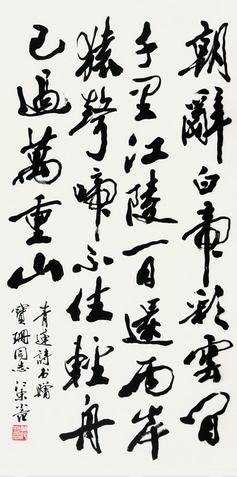 朝辭白帝彩雲間
千里江陵一日還兩岸
猿聲啼不住輕舟
已過萬重山
青蓮詩書贈
寶珊同志